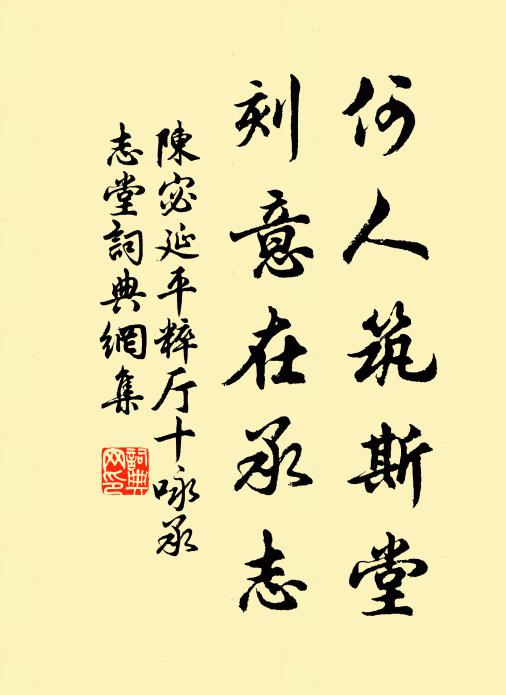 何人筑斯堂
刻意在承志
陳宓延平粹厅十咏承
志堂詞典網集
詞典网印